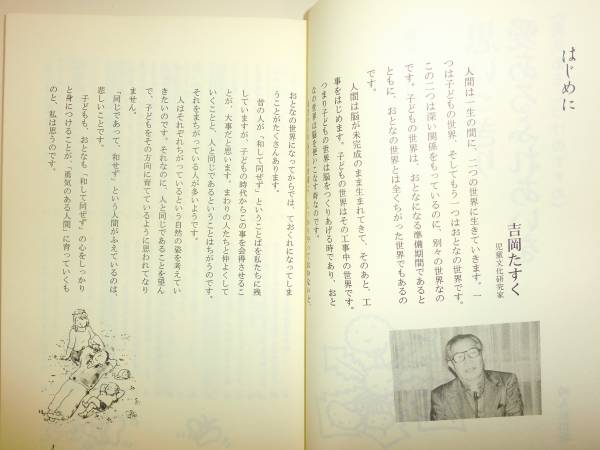 はじめに
吉岡たすく
児童文化研究家
人間は一生の間に、二つの世界に生きていきます。一
つは子どもの世界、そしてもう一つはおとなの世界です。
この二つは深い関係をもっているのに、別々の世界なの
です。子どもの世界は、おとなになる準備期間であると
ともに、おとなの世界とは全くちがった世界でもあるの
です。
人間は脳が未完成のまま生まれてきて、そのあと、工
事をはじめます。子どもの世界はその工事中の世界です。
つまり子どもの世界は脳をつくりあげる時であり、おと
なの世界は脳を使いこなす時なのです。
おとなの世界になってからでは、ておくれになってしま
うことがたくさんあります。
昔の人が、「和して同ぜず」ということばを私たちに残
していますが、子どもの時代からこの事を会得させるこ
とが、大事だと思います。まわりの人たちと仲よくして
いくことと、人と同じであるということはちがうのです。
それをまちがっている人が多いようです。
人はそれぞれちがっているという自然の姿を考えてい
きたいのです。それなのに、人と同じであることを望ん
で、子どもをその方向に育てているように思われてなり
ません。
「同じであって、和せず」という人間がふえているのは、
悲しいことです。
子どもも、おとなも「和して同ぜず」の心をしっかり
と身につけることが、「勇気のある人間」に育っていくも
のと、私は思うのです。